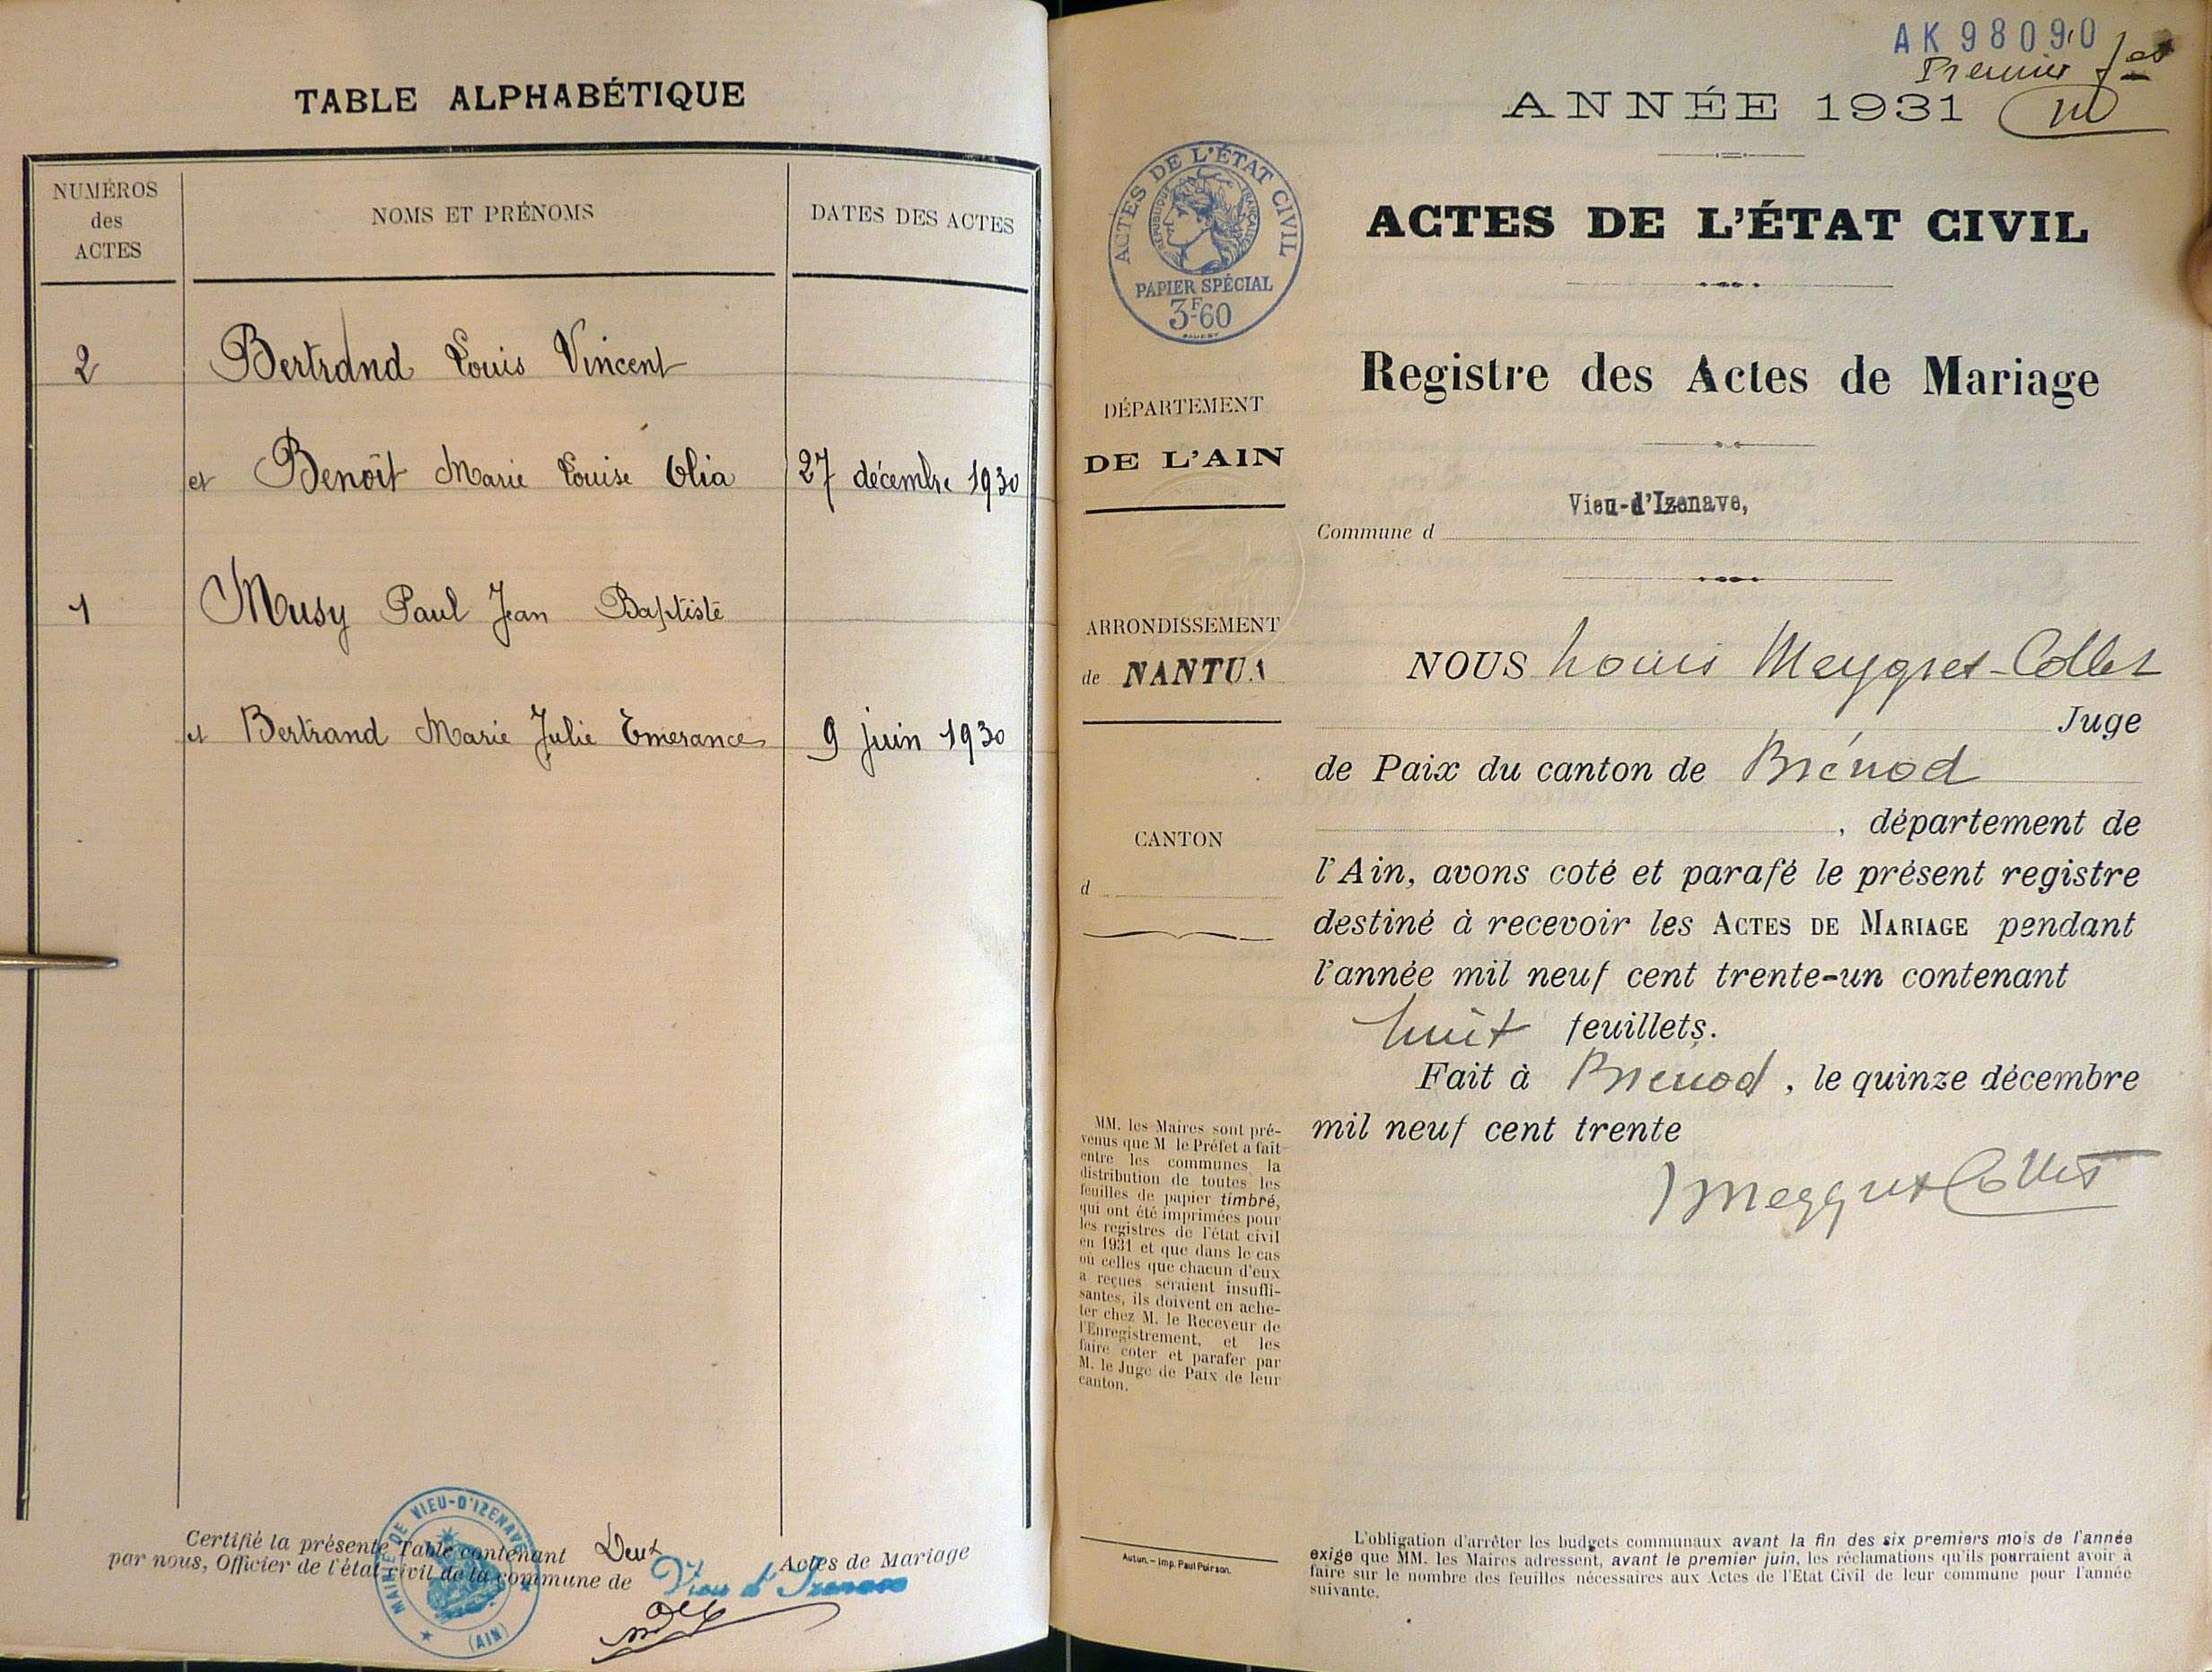 TABLE ALPHABÉTIQUE
NUMÉROS
des
ACTES
NOMS ET PRÉNOMS
DATES DES ACTES
2 Bertrand Louis Vincent
et Benoît Marie Louise Olia 27 décembre 1930
1 Musy Paul Jean Baptiste
et Bertrand Marie Julie Emerance 9 juin 1930
Certifié la présente Table contenant Deux Actes de Mariage
par nous, Officier de l'état civil de la commune de Vieu d'Izenave
MAIRIE DE VIEU-D'IZENAVE
(AIN)
AK98090
Premier
ANNÉE 1931
ACTES DE L'ÉTAT CIVIL
RÉPUBLIQUE FRANÇAISE
PAPIER SPÉCIAL
3F60
ACTES DE L'ÉTAT CIVIL
Registre des Actes de Mariage
DÉPARTEMENT
DE L'AIN
Vieu-d'Izenave,
Commune d
ARRONDISSEMENT
de NANTUA
CANTON
d
NOUS Louis Meygret-Collet
Juge
de Paix du canton de Brénod
, département de
l'Ain, avons coté et parafé le présent registre
destiné à recevoir les ACTES DE MARIAGE pendant
l'année mil neuf cent trente-un contenant
huit feuillets.
Fait à Brenod, le quinze décembre
mil neuf cent trente
Meygret Collet
MM. les Maires sont pré-
venus que M le Préfet a fait
entre les communes la
distribution de toutes les
feuilles de papier timbré,
qui ont été imprimées pour
les registres de l'état civil
en 1931 et que dans le cas
où celles que chacun d'eux
a reçues seraient insuffi-
santes, ils doivent en ache-
ter chez M. le Receveur de
l'Enregistrement, et les
faire coter et parafer par
M. le Juge de Paix de leur
canton.
Autun. — Imp. Paul Poirson.
L'obligation d'arrêter les budgets communaux avant la fin des six premiers mois de l'année
exige que MM. les Maires adressent, avant le premier juin, les réclamations qu'ils pourraient avoir à
faire sur le nombre des feuilles nécessaires aux Actes de l'Etat Civil de leur commune pour l'année
suivante.